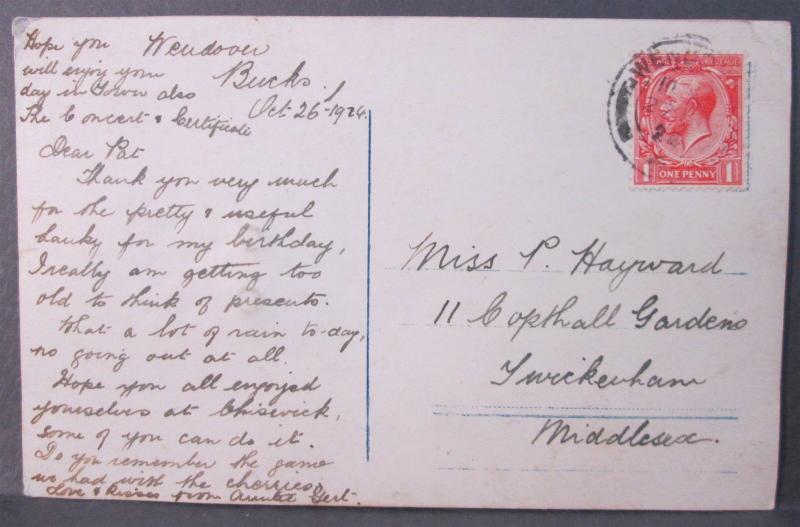 Hope you
will enjoy your
day in Town also
The Concert & Certificate
Wendover
Bucks.
Oct 26/1924.
Dear Pat
Thank you very much
for the pretty & useful
hanky for my birthday,
I really am getting too
old to think of presents.
What a lot of rain to-day,
no going out at all.
Hope you all enjoyed
yourselves at Chiswick,
some of you can do it.
Do you remember the game
we had with the cherries
Love & kisses from Auntie Gert.
ONE PENNY
1 1
Miss P. Hayward
11 Copthall Gardens
Twickenham
Middlesex.